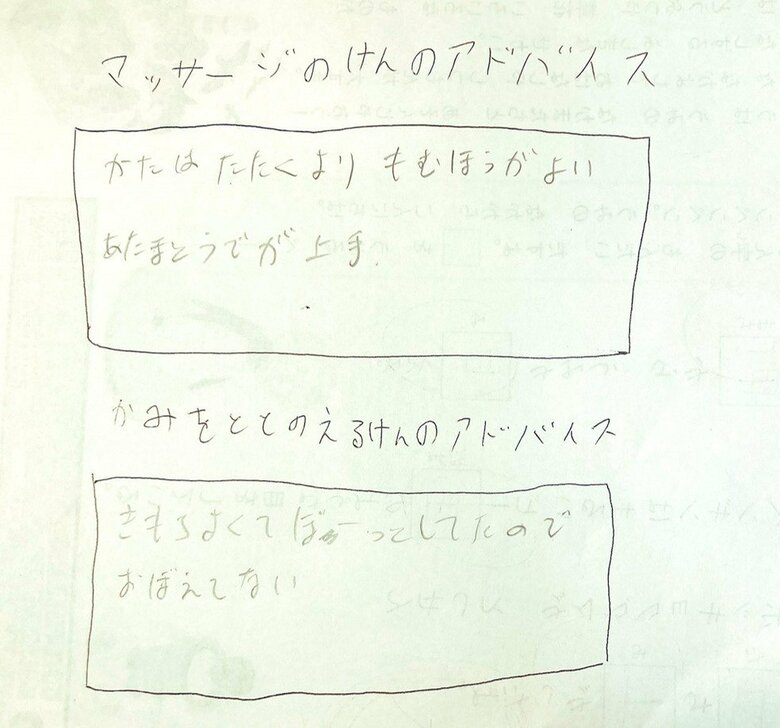 マッサージのけんのアドバイス
かたは たたくより もむほうがよい
あたまとうでが上手.
かみをととのえるけんのアドバイス
きもちよくてぼぉーっとしてたので
おぼえてない